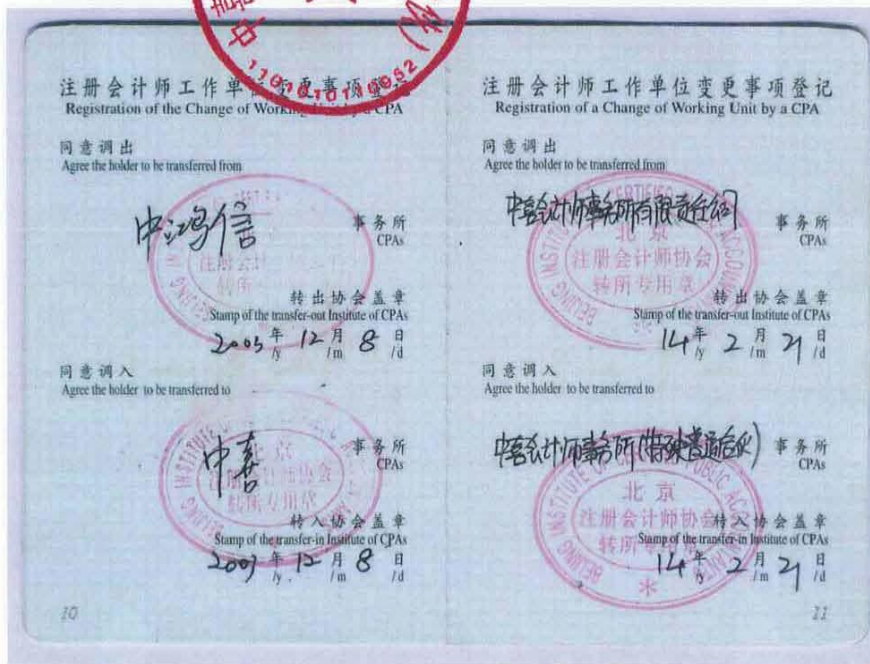 1101010110052
注册会计师工作单位变更事项登记
Registration of the Change of Working Unit by a CPA
同意调出
Agree the holder to be transferred from
中鸿信 事务所
CPAs
转出协会盖章
Stamp of the transfer-out Institute of CPAs
年 12 月 8 日
/y /m /d
同意调入
Agree the holder to be transferred to
中喜 事务所
CPAs
北京
注册会计师协会
转所专用章
转入协会盖章
Stamp of the transfer-in Institute of CPAs
年 12 月 8 日
/y /m /d
10
注册会计师工作单位变更事项登记
Registration of a Change of Working Unit by a CPA
同意调出
Agree the holder to be transferred from
中喜会计师事务所有限责任公司 事务所
CPAs
北京
注册会计师协会
转所专用章
转出协会盖章
Stamp of the transfer-out Institute of CPAs
14 年 2 月 21 日
/y /m /d
同意调入
Agree the holder to be transferred to
中喜会计师事务所(特殊普通合伙) 事务所
CPAs
北京
注册会计师协会
转所专用章
转入协会盖章
Stamp of the transfer-in Institute of CPAs
14 年 2 月 21 日
/y /m /d
11